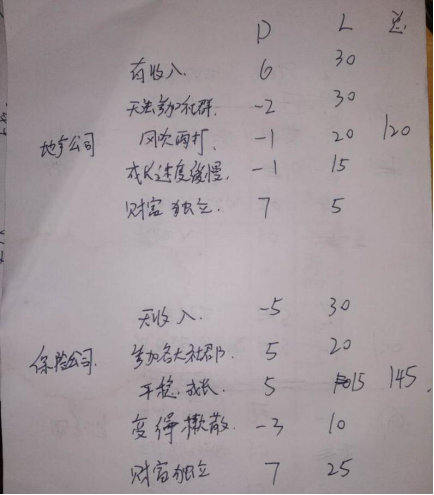 D L 总
有收入. 6 30
无法参加社群. -2 30
地产公司 风吹雨打. -1 20 120
成长速度缓慢. -1 15
财富独立. 7 5
无收入. -5 30
保险公司. 参加各大社群. 5 20
平稳.成长. 5 15 145.
变得懒散. -3 10
财富独立 7 25